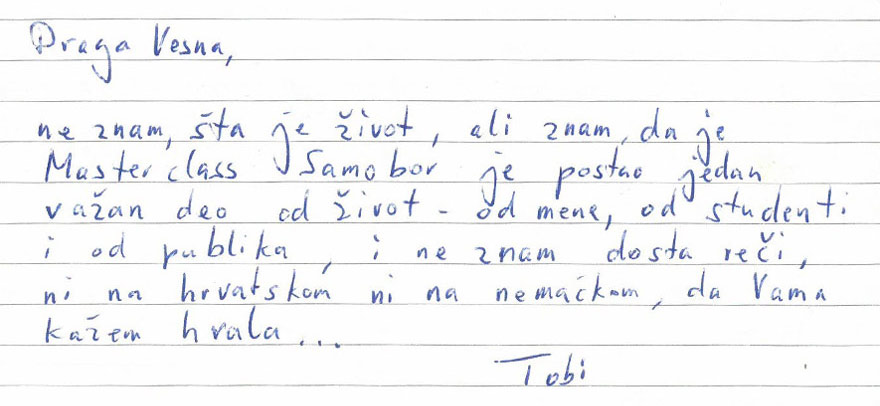 Draga Vesna,
ne znam, šta je život, ali znam, da je
Masterclass Samobor je postao jedan
važan deo od život - od mene, od studenti
i od publika, i ne znam dosta reči,
ni na hrvatskom ni na nemačkom, da Vama
kažem hvala...
Tobi